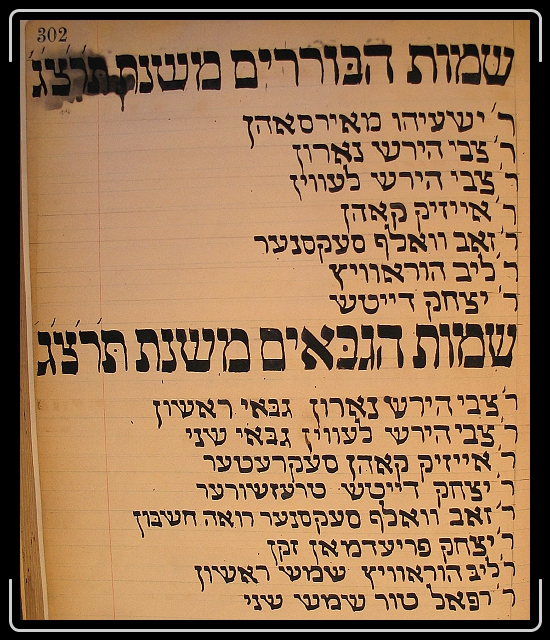 302
שמות הבוררים משנת תרצג
ר' ישעיהו מאירסאהן
ר' צבי הירש נארון
ר' צבי הירש לעווין
ר' אייזיק קאהן
ר' זאב וואלף סעקסנער
ר' ליב הוראוויץ
ר' יצחק דייטש
שמות הגבאים משנת תרצג
ר' צבי הירש נארון גבאי ראשון
ר' צבי הירש לעווין גבאי שני
ר' אייזיק קאהן סעקרעטער
ר' יצחק דייטש טרעזשורער
ר' זאב וואלף סעקסנער רואה חשבון
ר' יצחק פריעדמאן זקן
ר' ליב הוראוויץ שמש ראשון
ר' רפאל טור שמש שני